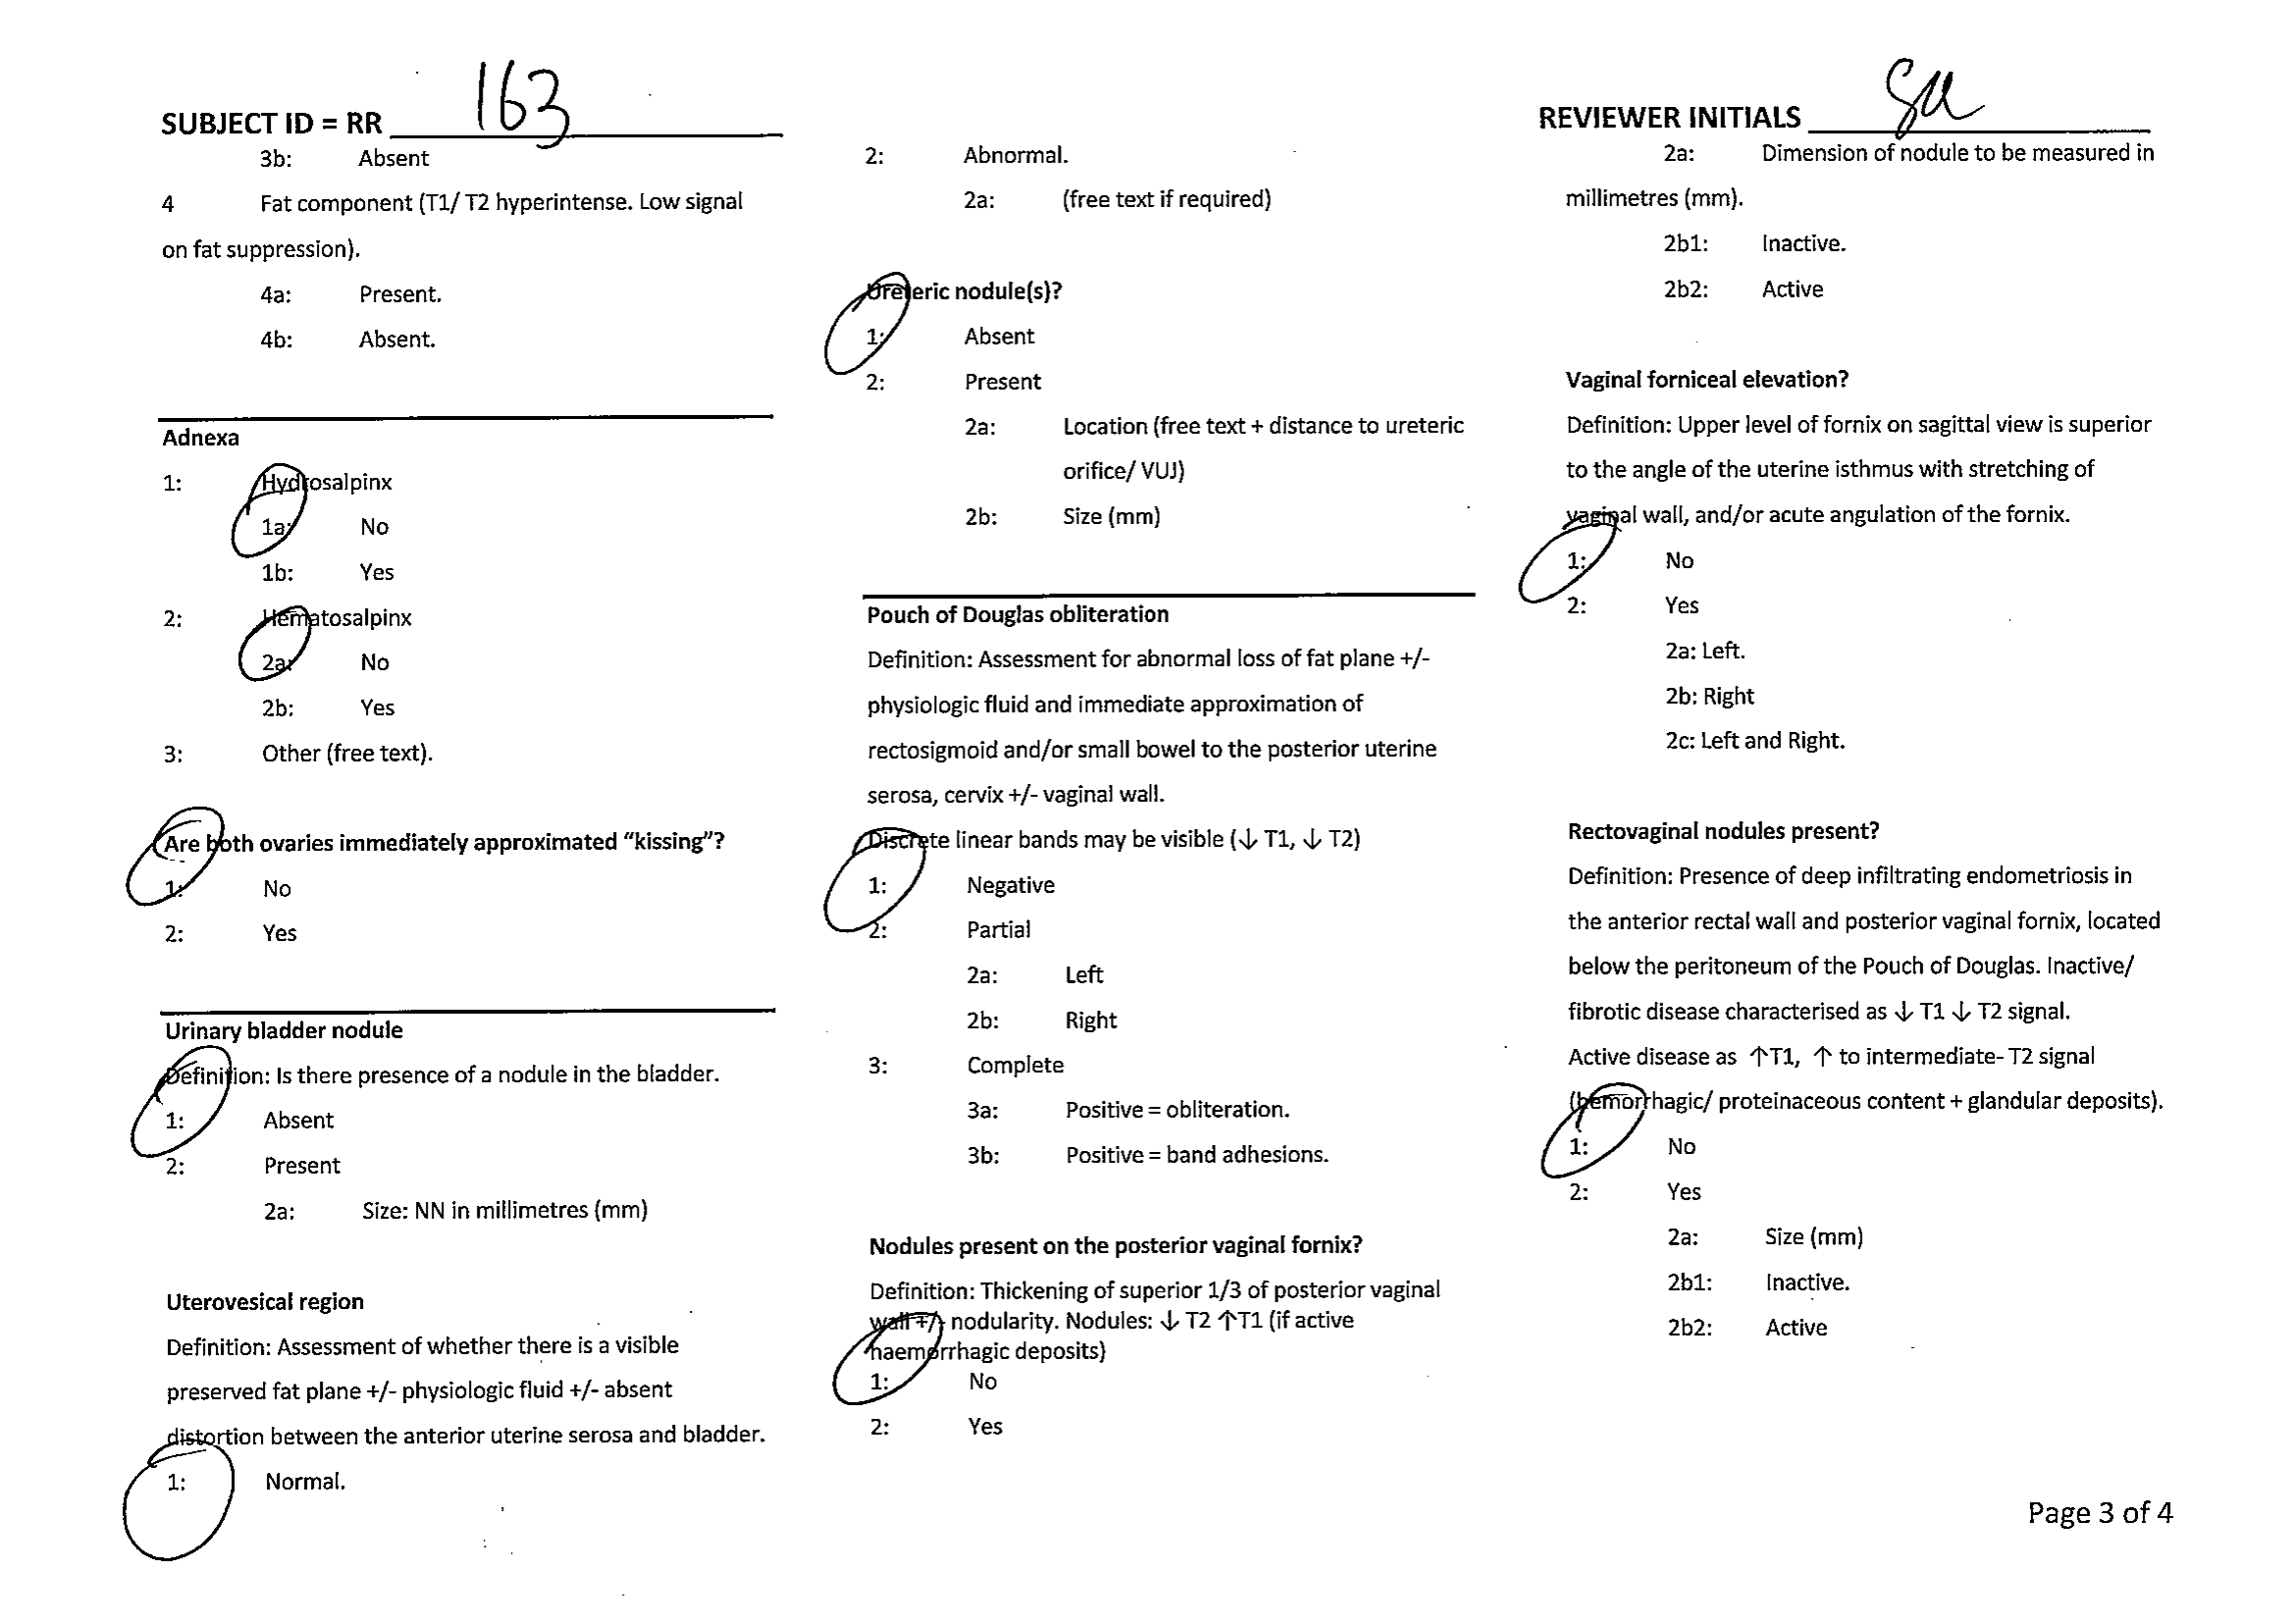 SUBJECT ID = RR 163
3b: Absent
4 Fat component (T1/ T2 hyperintense. Low signal
on fat suppression).
4a: Present.
4b: Absent.
Adnexa
1: Hydrosalpinx
1a: No
1b: Yes
2: Hematosalpinx
2a: No
2b: Yes
3: Other (free text).
Are both ovaries immediately approximated “kissing”?
1: No
2: Yes
Urinary bladder nodule
Definition: Is there presence of a nodule in the bladder.
1: Absent
2: Present
2a: Size: NN in millimetres (mm)
Uterovesical region
Definition: Assessment of whether there is a visible
preserved fat plane +/- physiologic fluid +/- absent
distortion between the anterior uterine serosa and bladder.
1: Normal.
2: Abnormal.
2a: (free text if required)
Ureteric nodule(s)?
1: Absent
2: Present
2a: Location (free text + distance to ureteric
orifice/ VUJ)
2b: Size (mm)
Pouch of Douglas obliteration
Definition: Assessment for abnormal loss of fat plane +/-
physiologic fluid and immediate approximation of
rectosigmoid and/or small bowel to the posterior uterine
serosa, cervix +/- vaginal wall.
Discrete linear bands may be visible (↓ T1, ↓ T2)
1: Negative
2: Partial
2a: Left
2b: Right
3: Complete
3a: Positive = obliteration.
3b: Positive = band adhesions.
Nodules present on the posterior vaginal fornix?
Definition: Thickening of superior 1/3 of posterior vaginal
wall +/- nodularity. Nodules: ↓ T2 ↑T1 (if active
haemorrhagic deposits)
1: No
2: Yes
REVIEWER INITIALS
2a: Dimension of nodule to be measured in
millimetres (mm).
2b1: Inactive.
2b2: Active
Vaginal forniceal elevation?
Definition: Upper level of fornix on sagittal view is superior
to the angle of the uterine isthmus with stretching of
vaginal wall, and/or acute angulation of the fornix.
1: No
2: Yes
2a: Left.
2b: Right
2c: Left and Right.
Rectovaginal nodules present?
Definition: Presence of deep infiltrating endometriosis in
the anterior rectal wall and posterior vaginal fornix, located
below the peritoneum of the Pouch of Douglas. Inactive/
fibrotic disease characterised as ↓ T1 ↓ T2 signal.
Active disease as ↑T1, ↑ to intermediate- T2 signal
(hemorrhagic/ proteinaceous content + glandular deposits).
1: No
2: Yes
2a: Size (mm)
2b1: Inactive.
2b2: Active
Page 3 of 4